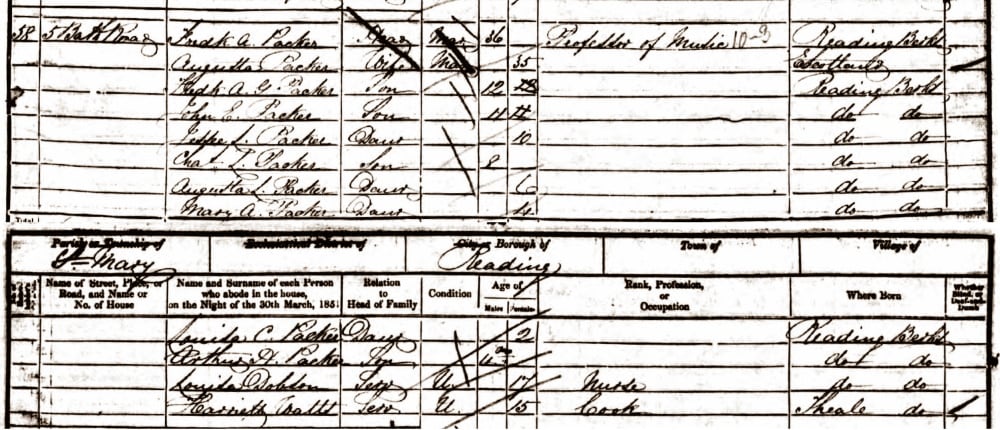 38 5 Bath Road Fredk A. Packer Head Mar 36 Professor of Music Reading Berks
Augusta Packer Wife Mar 35 Scotland
Fredk A. G. Packer Son 12 Reading Berks
John E. Packer Son 11 do do
Packer Daur 10 do do
Chas S. Packer Son 8 do do
Augusta L. Packer Daur 6 do do
Mary A. Packer Daur 4 do do
Parish or Township of Ecclesiastical District of City or Borough of Town of Village of
St. Mary Reading
Name of Street, Place, or Road, and Name or No. of House
Name and Surname of each Person who abode in the house, on the Night of the 30th March, 1851
Relation to Head of Family
Condition
Age of
Males Females
Rank, Profession, or Occupation
Where Born
Whether Blind, or Deaf-and-Dumb
Louisa C. Packer Daur 2 Reading Berks
Arthur H. Packer Son do do
Louisa Dobson Serv U. 17 Nurse do do
Harriett Watts Serv U. 15 Cook Theale do